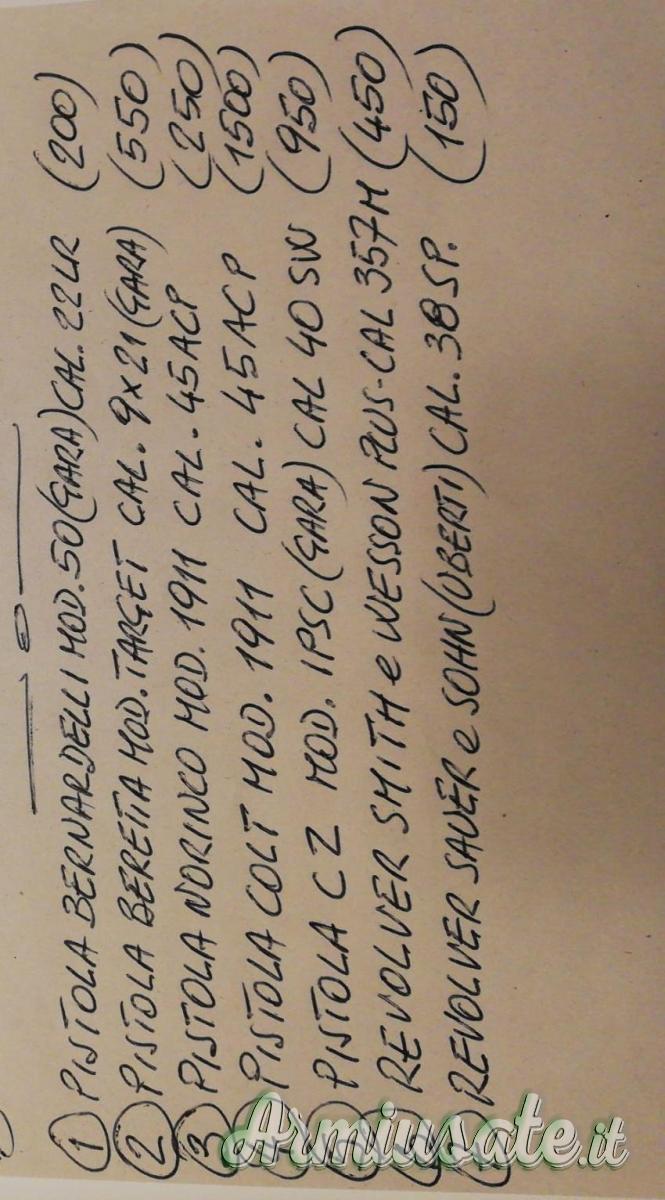 1 PISTOLA BERNARDELLI MOD. 50 (GARA) CAL. 22LR (200)
2 PISTOLA BERETTA MOD. TARGET CAL. 9x21 (GARA) (550)
3 PISTOLA NORINCO MOD. 1911 CAL. 45ACP (250)
4 PISTOLA COLT MOD. 1911 CAL. 45ACP (1500)
5 PISTOLA CZ MOD. IPSC (GARA) CAL 40SW (950)
6 REVOLVER SMITH e WESSON PLUS-CAL 357M (450)
7 REVOLVER SAUER e SOHN (UBERTI) CAL. 38SP. (150)
Armiusate.it